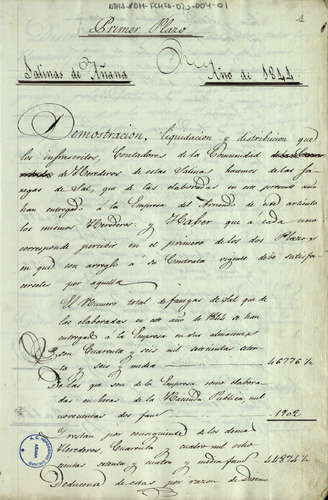 ATHA-ADH-FCHSA-023-004-01
1
Primer Plazo
Salinas de Añana
Año de 1844
Demostracion, liquidacion y distribucion que
los infrascritos, Contadores de la Comunidad
de Herederos de estas Salinas hacemos de las fa-
negas de Sal, que de las elaboradas en este presente año
han entregado á la Empresa del Arriendo de este articulo
los mismos Herederos, y Haber que á cada uno
corresponde percibir en el primero de los dos Plazos
en que con arreglo á su Contrata vigente debe satisfa-
cerseles por aquella
El Numero total de fanegas de Sal que de
las elaboradas en este año de 1844 se han
entregado á la Empresa en sus almacenes
son Cuarenta y seis mil setecientas seten-
ta y seis y media 46776 ½
De las que son de la Empresa como elabora-
das en heras de la Hacienda Publica, mil
novecientas dos fans 1902
Y restan por consiguiente de los demas
Herederos, Cuarenta y cuatro mil ocho-
cientas setenta y cuatro y media fans 44874 ½
Deducense de estas por razon de Diezmo